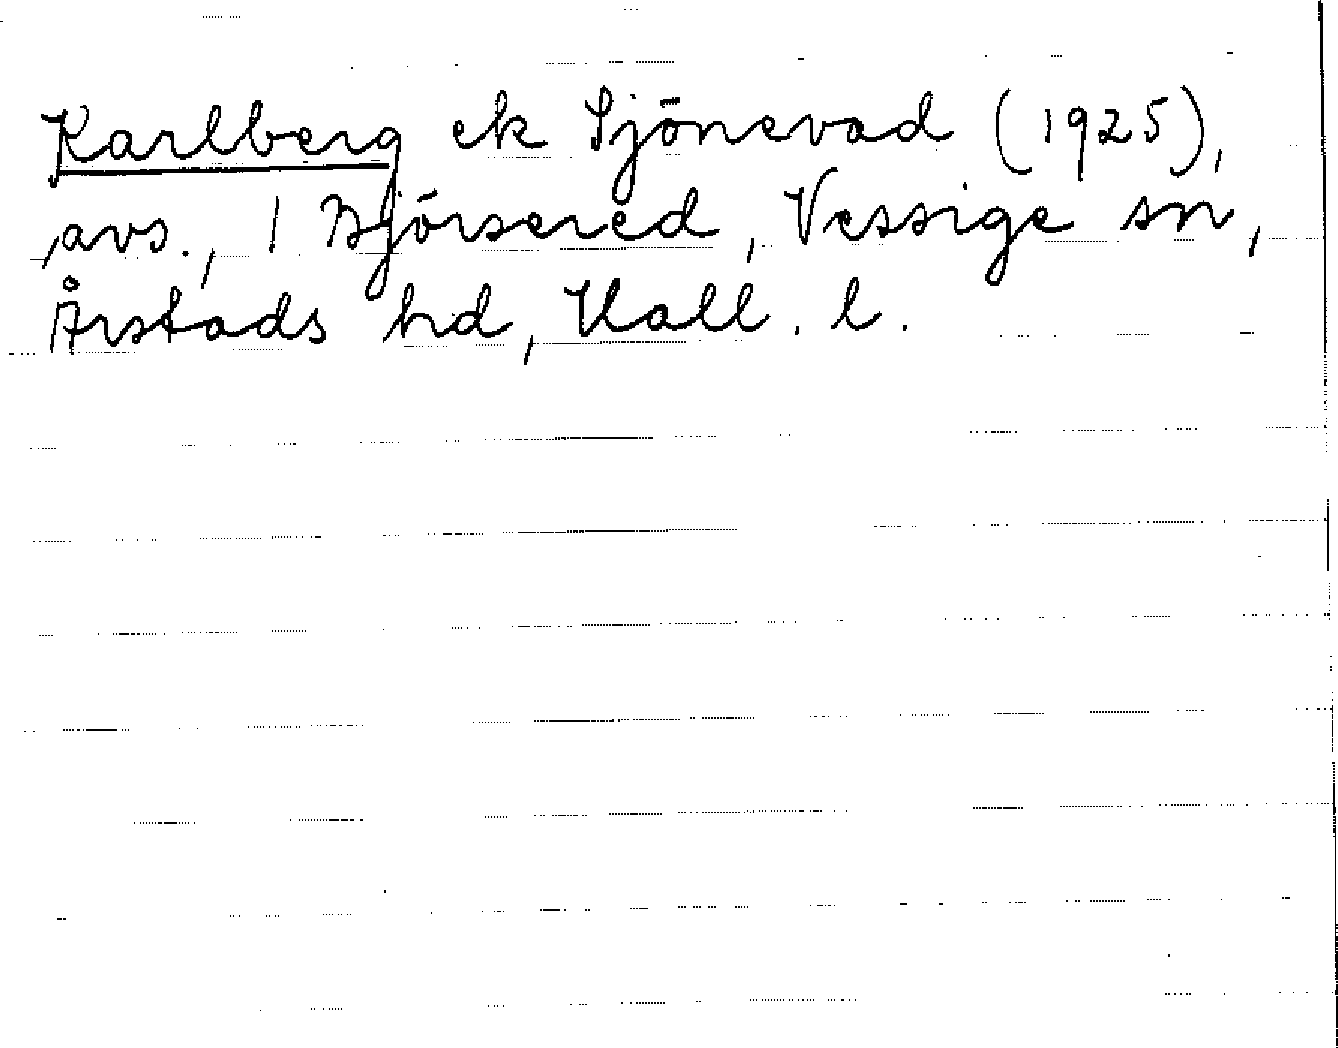 Karlberg ek Sjönevad (1925),
avs., 1 Björsered, Vessige sn,
Årstads hd, Hall. l.